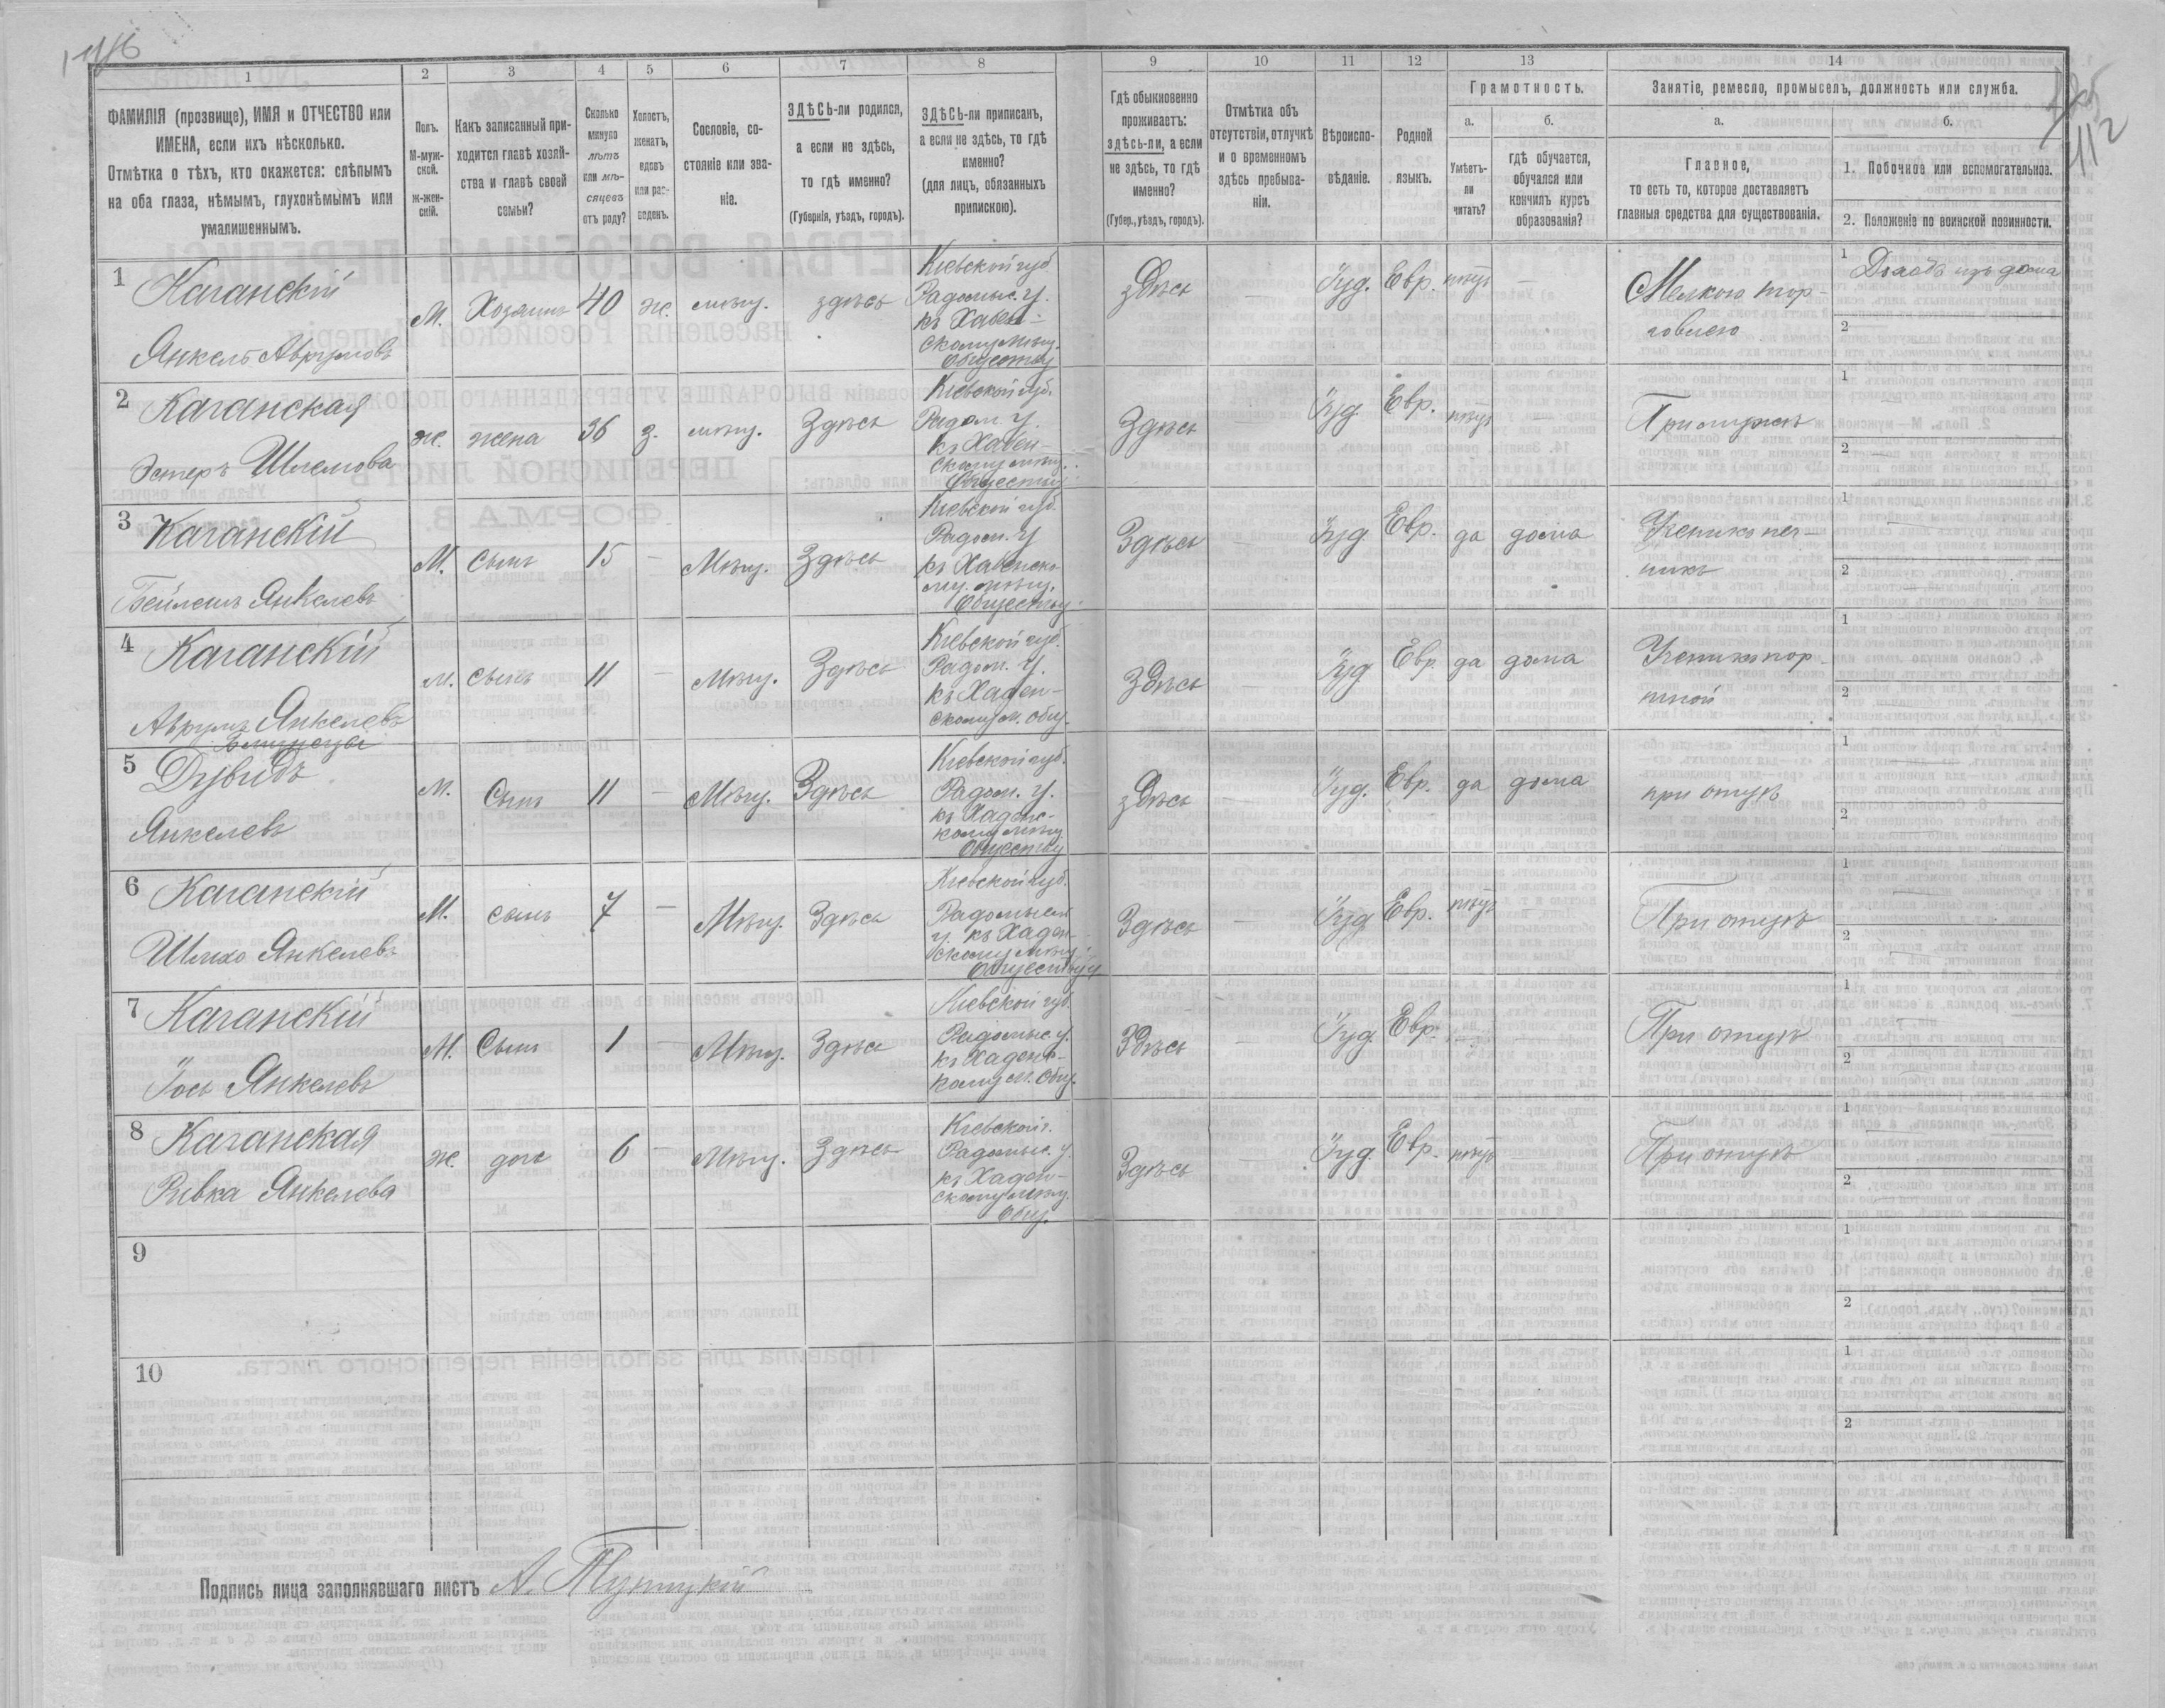 1 2 3 4 5 6 7 8 9 10 11 12 13 14
ФАМИЛІЯ (прозвище), ИМЯ и ОТЧЕСТВО или
ИМЕНА, если ихъ нѣсколько.
Отмѣтка о тѣхъ, кто окажется: слѣпымъ
на оба глаза, нѣмымъ, глухонѣмымъ или
умалишеннымъ.
Полъ.
М-муж-
ской.
Ж-жен-
скій.
Какъ записанный при-
ходится главѣ хозяй-
ства и главѣ своей
семьи?
Сколько
минуло
лѣтъ
или мѣ-
сяцевъ
отъ роду?
Холостъ,
женатъ,
вдовъ
или раз-
веденъ.
Сословіе, со-
стояніе или зва-
ніе.
ЗДѢСЬ-ли родился,
а если не здѣсь,
то гдѣ именно?
(Губернія, уѣздъ, городъ).
ЗДѢСЬ-ли приписанъ,
а если не здѣсь, то гдѣ
именно?
(для лицъ, обязанныхъ
припискою).
Гдѣ обыкновенно
проживаетъ:
здѣсь-ли, а если
не здѣсь, то гдѣ
именно?
(Губер., уѣздъ, городъ).
Отмѣтка объ
отсутствіи, отлучкѣ
и о временномъ
здѣсь пребыва-
ніи.
Вѣроиспо-
вѣданіе.
Родной
языкъ.
Грамотность.
а.
Умѣетъ-
ли
читать?
б.
гдѣ обучается,
обучался или
кончилъ курсъ
образованія?
Занятіе, ремесло, промыселъ, должность или служба.
а.
Главное,
то есть то, которое доставляетъ
главныя средства для существованія.
б.
1. Побочное или вспомогательное.
2. Положеніе по воинской повинности.
112
1 Каганскій
Янкель Аврумовъ
М. Хозяинъ 40 ж. мѣщ. здѣсь
Кіевской губ.
Радомыс. у.
къ Хабен-
скому мѣщ.
Обществу
здѣсь — Іуд. Евр. нѣтъ —
Мелкою тор-
говлею
1 Доходъ изъ дома
2
2 Каганская
Эстеръ Шлемова
ж. жена 36 з. мѣщ. Здѣсь
Кіевской губ.
Радом. у.
къ Хабен-
скому мѣщ.
Обществу
Здѣсь — Іуд. Евр. нѣтъ —
При мужѣ
1 —
2 —
3 Каганскій
Бейлешъ Янкелевъ
М. сынъ 15 — Мѣщ. Здѣсь
Кіевской губ.
Радом. у
къ Хабенско
му мѣщ.
Обществу
Здѣсь — Іуд Евр. да дома
Ученикъ печ-
никъ
1 —
2
4 Каганскій
Аврумъ Янкелевъ
Близнецы
М. сынъ 11 — Мѣщ. Здѣсь
Кіевской губ.
Радом. у.
къ Хаден-
скому м. общ.
здѣсь — Іуд Евр. да дома
Ученикъ пор-
тной
1
2
5 Дувидъ
Янкелевъ
М. Сынъ 11 — Мѣщ. Здѣсь
Кіевской губ.
Радом. у.
къ Хаденс-
кому мѣщ
Обществу
здѣсь — Іуд. Евр. да дома
при отцѣ
1 —
2
6 Каганскій
Шлихо Янкелевъ
М. сынъ 7 — Мѣщ. Здѣсь
Кіевской губ.
Радомысл
у. къ Хаден-
скому мѣщ.
Обществу
Здѣсь — Іуд Евр. нѣтъ —
При отцѣ
1 —
2 —
7 Каганскій
Іось Янкелевъ
М. Сынъ 1 — Мѣщ. Здѣсь
Кіевской губ.
Радомыс. у.
къ Хаденс-
кому м. Общ.
Здѣсь — Іуд Евр. — —
При отцѣ
1 —
2 —
8 Каганская
Ривка Янкелева
Ж. дочь 6 — Мѣщ. Здѣсь
Кіевской г.
Радомыс. у.
къ Хаден-
скому мѣщ.
Общ.
Здѣсь — Іуд Евр. нѣтъ —
При отцѣ
1 —
2 —
9
1
2
10
1
2
Подпись лица заполнявшаго листъ А.